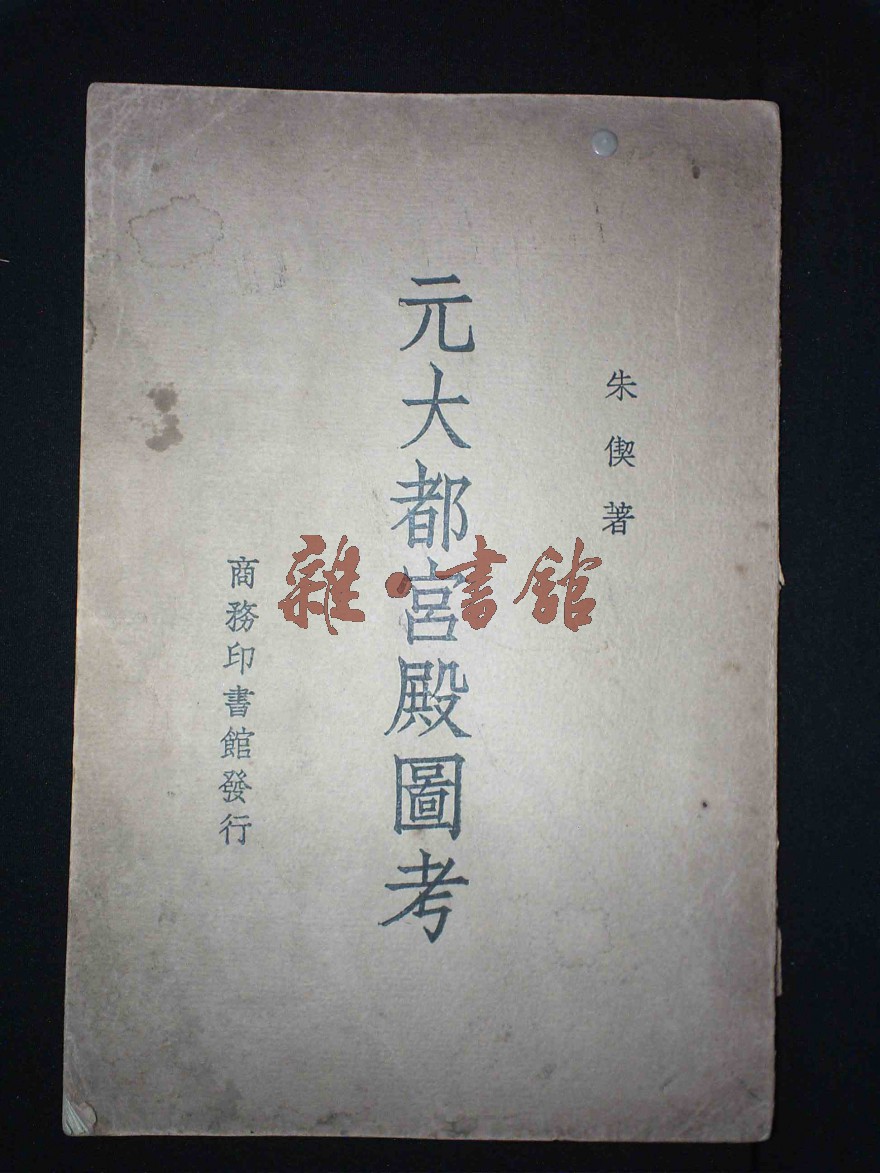 朱偰著
元大都宮殿圖考
商務印書館發行
雜·書館